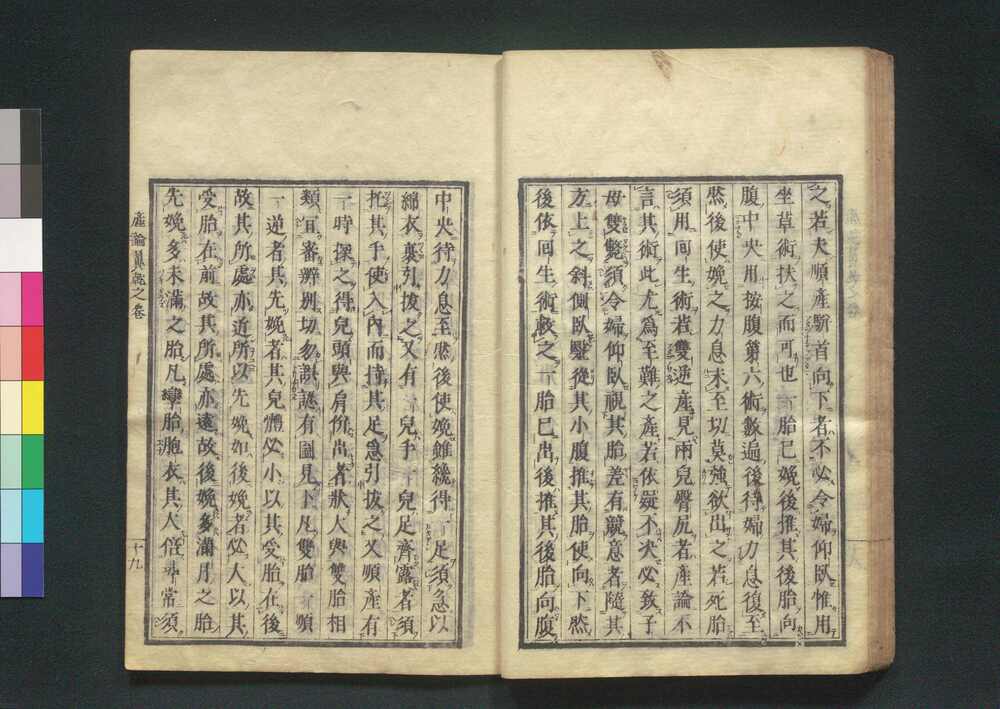 之若夫順產駢首向下者不必令婦仰臥惟用
坐草術扶之而可也一胎已娩後推其後胎向
腹中央用按腹第六術數遍後待婦力息復至
然後使娩之力息未至切莫強欲出之若死胎
須用回生術若雙逆產見兩兒臀尻者產論不
言其術此尤為至難之產若依疑不決必致子
母雙斃須令婦仰臥視其胎差有競意者隨其
方上之斜側臥壓從其小腹推其胎使向下然
後依回生術救之一胎已出後推其後胎向腹
中央待力息至然後使娩雖纔得一足須急以
綿衣裹引拔之又有一兒手一兒足齊露者須
托其手使入內而持其足急引拔之又順產有
一時探之得兒頭與肩份出者狀大與雙胎相
類宜審辨別切勿誤認有圖見下凡雙胎一順
一逆者其先娩者其兒體必小以其受胎在後
故其所處亦近所以先娩如後娩者必大以其
受胎在前故其所處亦遠故後娩多滿月之胎
先娩多未滿之胎凡孿胎胞衣其大倍尋常須
產論翼乾之卷
十九